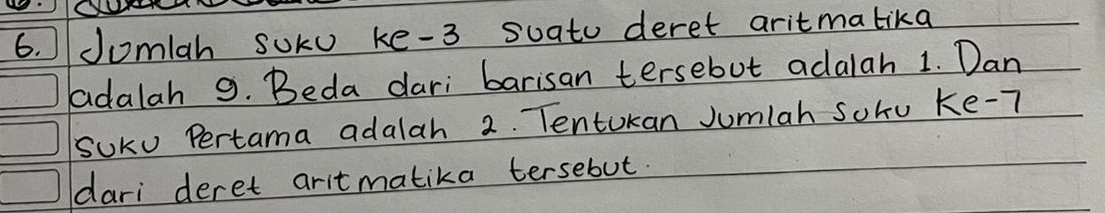 6. Jumlah suku ke-3 suatu deret aritmatika
adalah 9. Beda dari barisan tersebut adalah 1. Dan
suku Pertama adalah 2. Tentukan Jumlah suku ke-7
dari deret aritmatika tersebut.